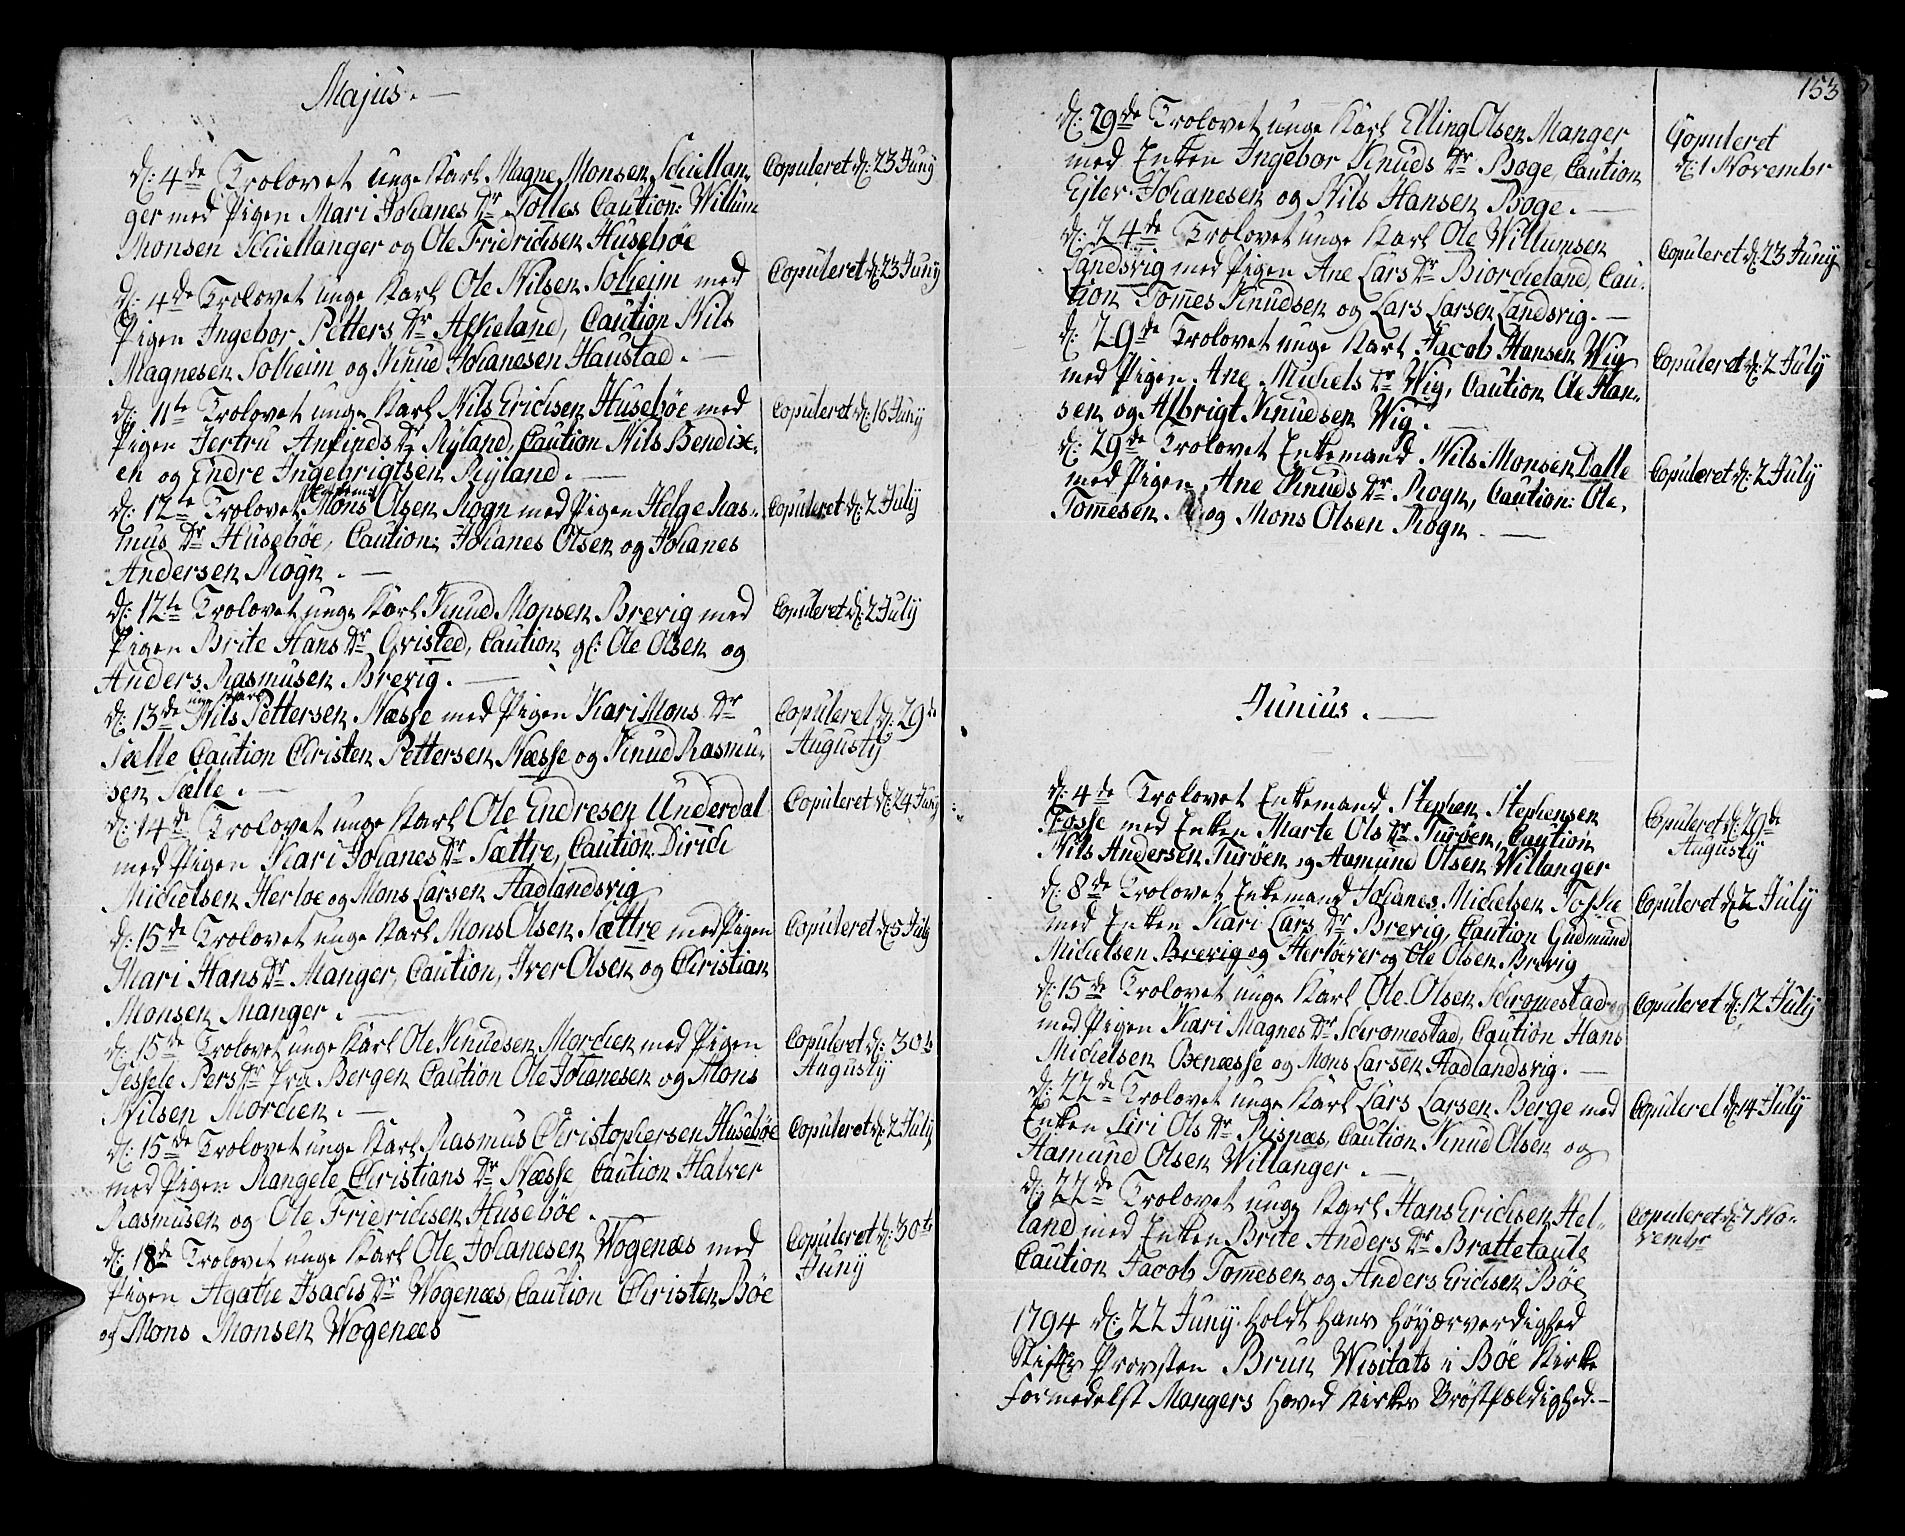 Majus.
d: 4de Trolovet unge Karl Magne Monsen Schiellan-
ger med Pigen Mari Johanes Dr Tolles Caution: Willum
Monsen Schiellanger og Ole Fridrichsen Huseböe
Copuleret d: 23 Juny
d: 4de Trolovet unge Karl Ole Nilsen Solheim med
Pigen Ingebor Petters Dr Askeland, Caution Nils
Magnesen Solheim og Knud Johanesen Haustad.
Copuleret d: 23 Juny
d: 11te Trolovet unge Karl Nils Erichsen Huseböe med
Pigen Jertru Anfinds Dr Ryland, Caution Nils Bendix-
en og Endre Ingebrigtsen Ryland.
Copuleret d: 16 Juny
d: 12te Trolovet Mons Olsen Rogn med Pigen Helge Ras-
mus Dr Husebøe, Caution: Johanes Olsen og Johanes
Andersen Rogn.
Copuleret d: 2 July
d: 12te Trolovet unge Karl Knud Monsen Brevig med
Pigen Brite Hans Dr Gristed, Caution gl: Ole Olsen og
Anders Rasmusen Brevig.
Copuleret d: 2 July
unge Karl
d: 13de Nils Pettersen Næsse med Pigen Kari Mons Dr
Sælle Caution Christen Pettersen Næsse og Knud Rasmu-
sen Sælle.
Copuleret d: 29de
Augusty
d: 14de Trolovet unge Karl Ole Endresen Underdal
med Pigen Kari Johanes Dr Sættre, Caution Dirich
Michelsen Herløe og Mons Larsen Aadlandsvig
Copuleret d: 24 Juny
d: 15de Trolovet unge Karl Mons Olsen Sættre med Pigen
Mari Hans Dr Manger, Caution, Iver Olsen og Christian
Monsen Manger.
Copuleret d: 5 July
d: 15de Trolovet unge Karl Ole Knudsen Morchen med Pigen
Tessele Pers Dr fra Bergen Caution Ole Johanesen og Mons
Nilsen Morchen.
Copuleret d: 30te
Augusty
d: 15de Trolovet unge Karl Rasmus Christophersen Husebøe
med Pigen Rangele Christians Dr Næsse, Caution Halver
Rasmusen og Ole Fridrichsen Husebøe.
Copuleret d: 2 July
d: 18de Trolovet unge Karl Ole Johanesen Wogenæs med
Pigen Agathe Isachs Dr Wogenæs, Caution Christen Bøe
og Mons Monsen Wogenæs
Copuleret d: 30te
Juny
153
d: 29de Trolovet unge Karl Elling Olsen Manger
med Enken Ingebor Knuds Dr Boge, Caution
Ejler Johanesen og Nils Hansen Boge.
Copuleret
d: 1 Novembr
d: 24de Trolovet unge Karl Ole Willumsen
Landsvig med Pigen Ane Lars Dr Biorcheland, Cau-
tion Tomes Knudsen og Lars Larsen Landsvig.
Copuleret d: 23 Juny
d: 29de Trolovet unge Karl Jacob Hansen Wig
med Pigen Ane Michels Dr Wig, Caution Ole Han-
sen og Albrigt Knudsen Wig.
Copuleret d: 2 July
d: 29de Trolovet Enkemand Nils Monsen Dalle
med Pigen Ane Knuds Dr Rogn, Caution: Ole
Tomesen og Mons Olsen Rogn.
Copuleret d: 2 July
Junius.
d: 4de Trolovet Enkemand Stephen Stephensen
Fosse med Enken Marte Ols Dr Turøen, Caution
Nils Andersen Turøen og Aamund Olsen Willanger
Copuleret d: 29de
Augusty
d: 8de Trolovet Enkemand Johanes Michelsen Foshe
med Enken Kari Lars Dr Brevig, Caution Gudmund
Michelsen Brevig og Herløever og Ole Olsen Brevig
Copuleret d: 2 July
d: 15de Trolovet unge Karl Ole Olsen Schromestad
med Pigen Kari Magnes Dr Schromestad, Caution Hans
Michelsen Oxenæsse og Mons Larsen Aadlandsvig.
Copuleret d: 12 July
d: 22de Trolovet unge Karl Lars Larsen Berge med
Enken Siri Ols Dr Risnæs, Caution Knud Olsen og
Aamund Olsen Willanger.
Copuleret d: 14 July
d: 22de Trolovet unge Karl Hans Erichsen Hel-
land med Enken Brite Anders Dr Brattetaule
Caution Jacob Tomesen og Anders Erichsen Bøe
Copuleret d: 7 No-
vembr
1794 d: 22 Juny holdt Hans Høyærverdighed
Stifts Provsten Brun Wisitats i Bøe Kirke
Formedelst Mangers Hoved Kirkes Brøstfældighed.